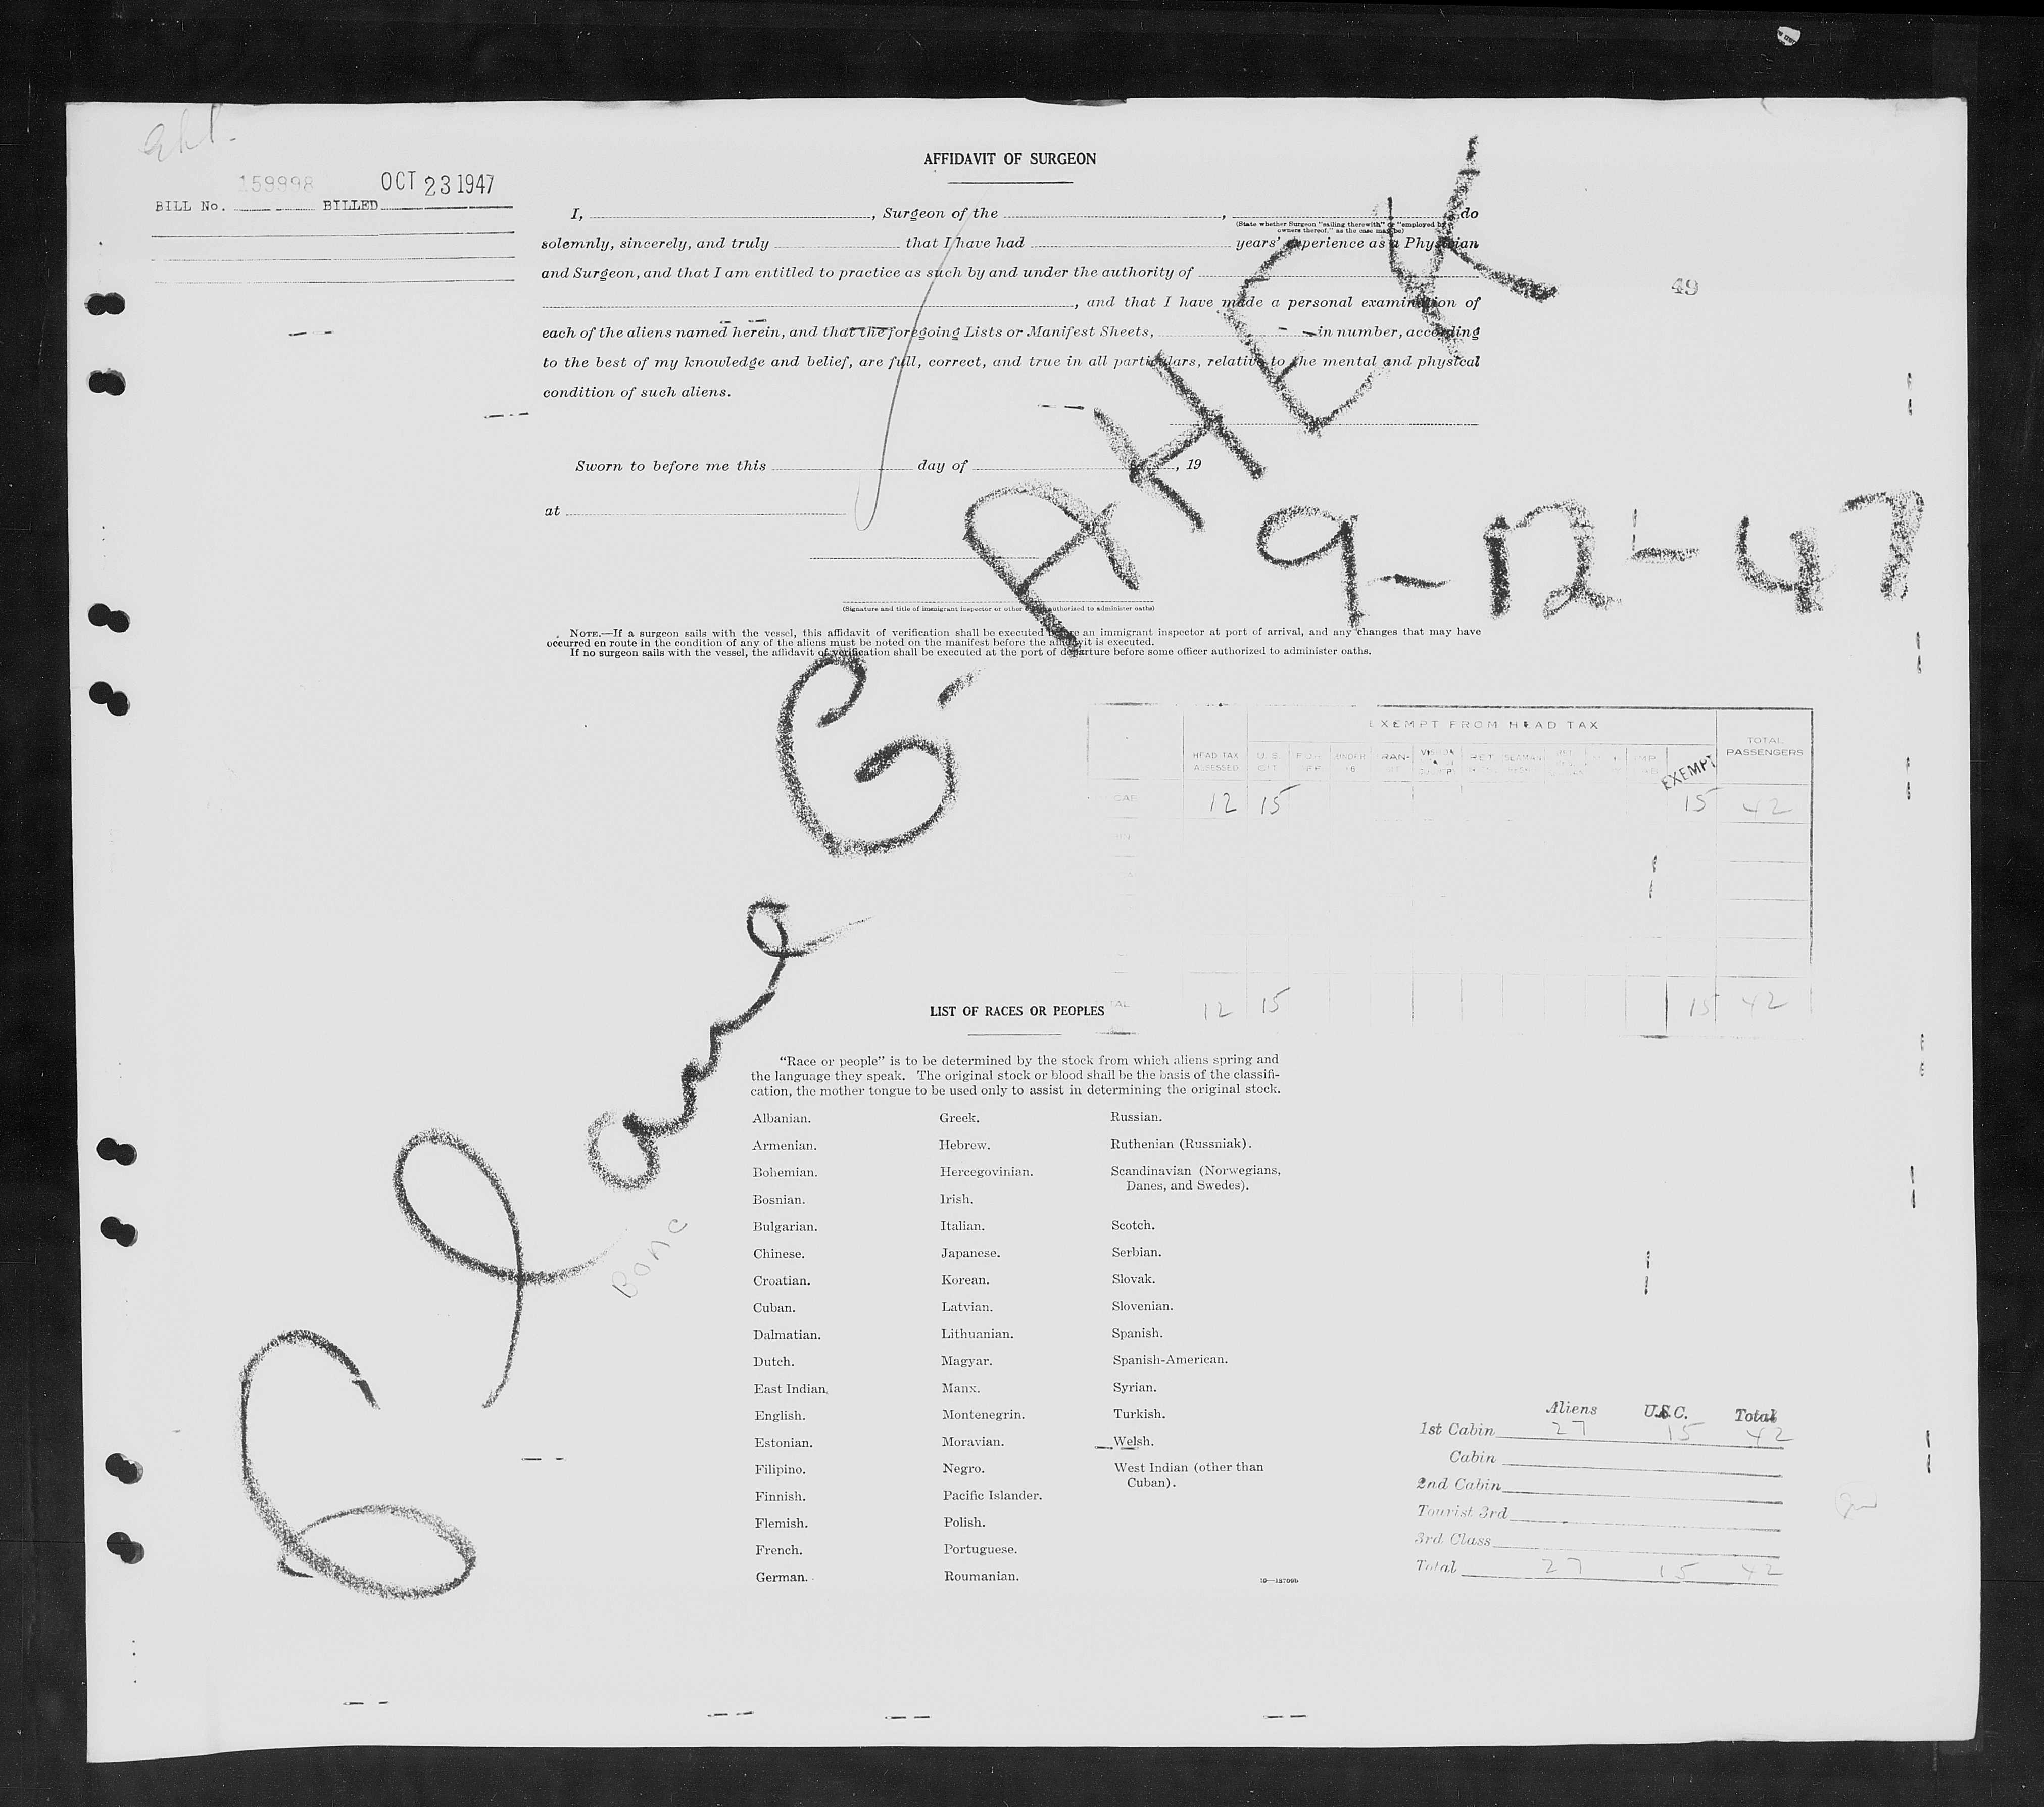 159998 OCT 23 1947
BILL No. BILLED
AFFIDAVIT OF SURGEON
I, , Surgeon of the , , do
(State whether Surgeon "sailing therewith" or "employed by
owners thereof," as the case may be)
solemnly, sincerely, and truly that I have had years' experience as a Physician
and Surgeon, and that I am entitled to practice as such by and under the authority of
, and that I have made a personal examination of
49
each of the aliens named herein, and that the foregoing Lists or Manifest Sheets, in number, according
to the best of my knowledge and belief, are full, correct, and true in all particulars, relative to the mental and physical
condition of such aliens.
Sworn to before me this day of , 19
at
(Signature and title of immigrant inspector or other authorized to administer oaths)
NOTE.—If a surgeon sails with the vessel, this affidavit of verification shall be executed before an immigrant inspector at port of arrival, and any changes that may have
occurred en route in the condition of any of the aliens must be noted on the manifest before the affidavit is executed.
If no surgeon sails with the vessel, the affidavit of verification shall be executed at the port of departure before some officer authorized to administer oaths.
G. AHEK
9-12-47
EXEMPT FROM HEAD TAX
HEAD TAX ASSESSED U.S. CIT. UNDER 16 TRAN- RET. SEAMAN EXEMPT TOTAL PASSENGERS
CAB 12 15 15 42
TOTAL 12 15 15 42
LIST OF RACES OR PEOPLES
"Race or people" is to be determined by the stock from which aliens spring and
the language they speak. The original stock or blood shall be the basis of the classifi-
cation, the mother tongue to be used only to assist in determining the original stock.
Albanian. Greek. Russian.
Armenian. Hebrew. Ruthenian (Russniak).
Bohemian. Hercegovinian. Scandinavian (Norwegians,
Danes, and Swedes).
Bosnian. Irish.
Bulgarian. Italian. Scotch.
Chinese. Japanese. Serbian.
Croatian. Korean. Slovak.
Cuban. Latvian. Slovenian.
Dalmatian. Lithuanian. Spanish.
Dutch. Magyar. Spanish-American.
East Indian. Manx. Syrian.
English. Montenegrin. Turkish.
Estonian. Moravian. Welsh.
Filipino. Negro. West Indian (other than
Cuban).
Finnish. Pacific Islander.
Flemish. Polish.
French. Portuguese.
German. Roumanian.
Aliens U.S.C. Total
1st Cabin 27 15 42
Cabin
2nd Cabin
Tourist 3rd
3rd Class
Total 27 15 42